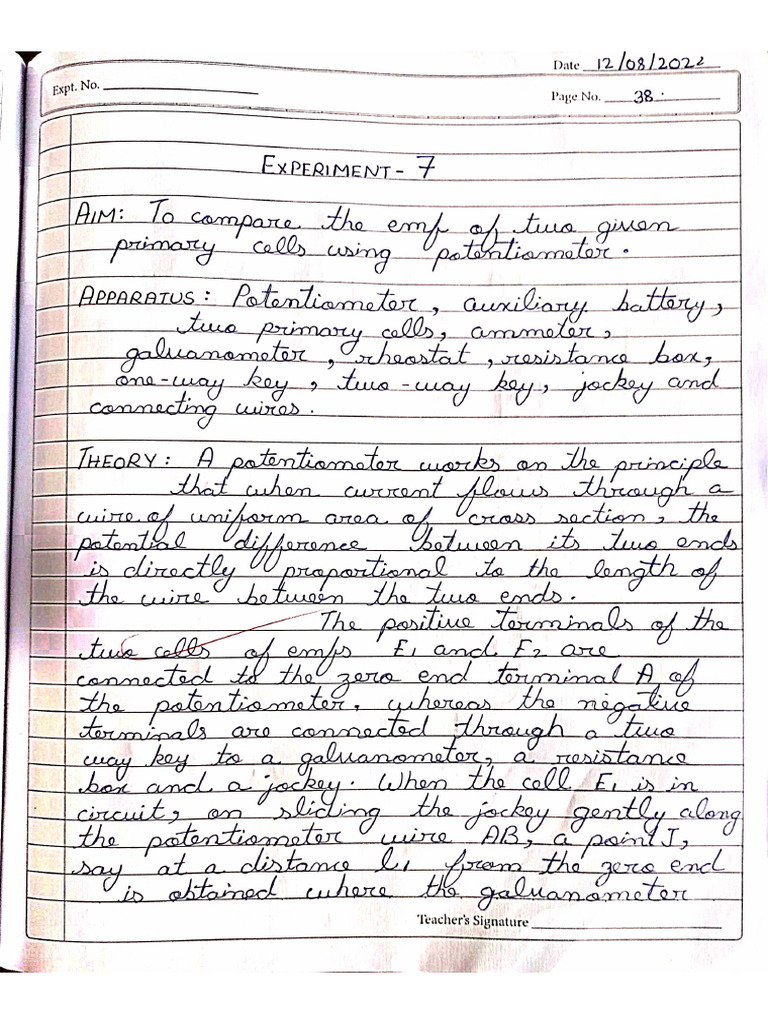 Date 12/08/2022
Expt. No.
Page No. 38.
EXPERIMENT - 7
AIM: To compare the emf of two given
primary cells using potentiometer.
APPARATUS: Potentiometer, auxiliary battery,
two primary cells, ammeter,
galvanometer, rheostat, resistance box,
one-way key, two-way key, jockey and
connecting wires.
THEORY: A potentiometer works on the principle
that when current flows through a
wire of uniform area of cross section, the
potential difference between its two ends
is directly proportional to the length of
the wire between the two ends.
The positive terminals of the
two cells of emfs E1 and E2 are
connected to the zero end terminal A of
the potentiometer, whereas the negative
terminals are connected through a two
way key to a galvanometer, a resistance
box and a jockey. When the cell E1 is in
circuit, on sliding the jockey gently along
the potentiometer wire AB, a point J,
say at a distance l1 from the zero end
is obtained where the galvanometer
Teacher's Signature